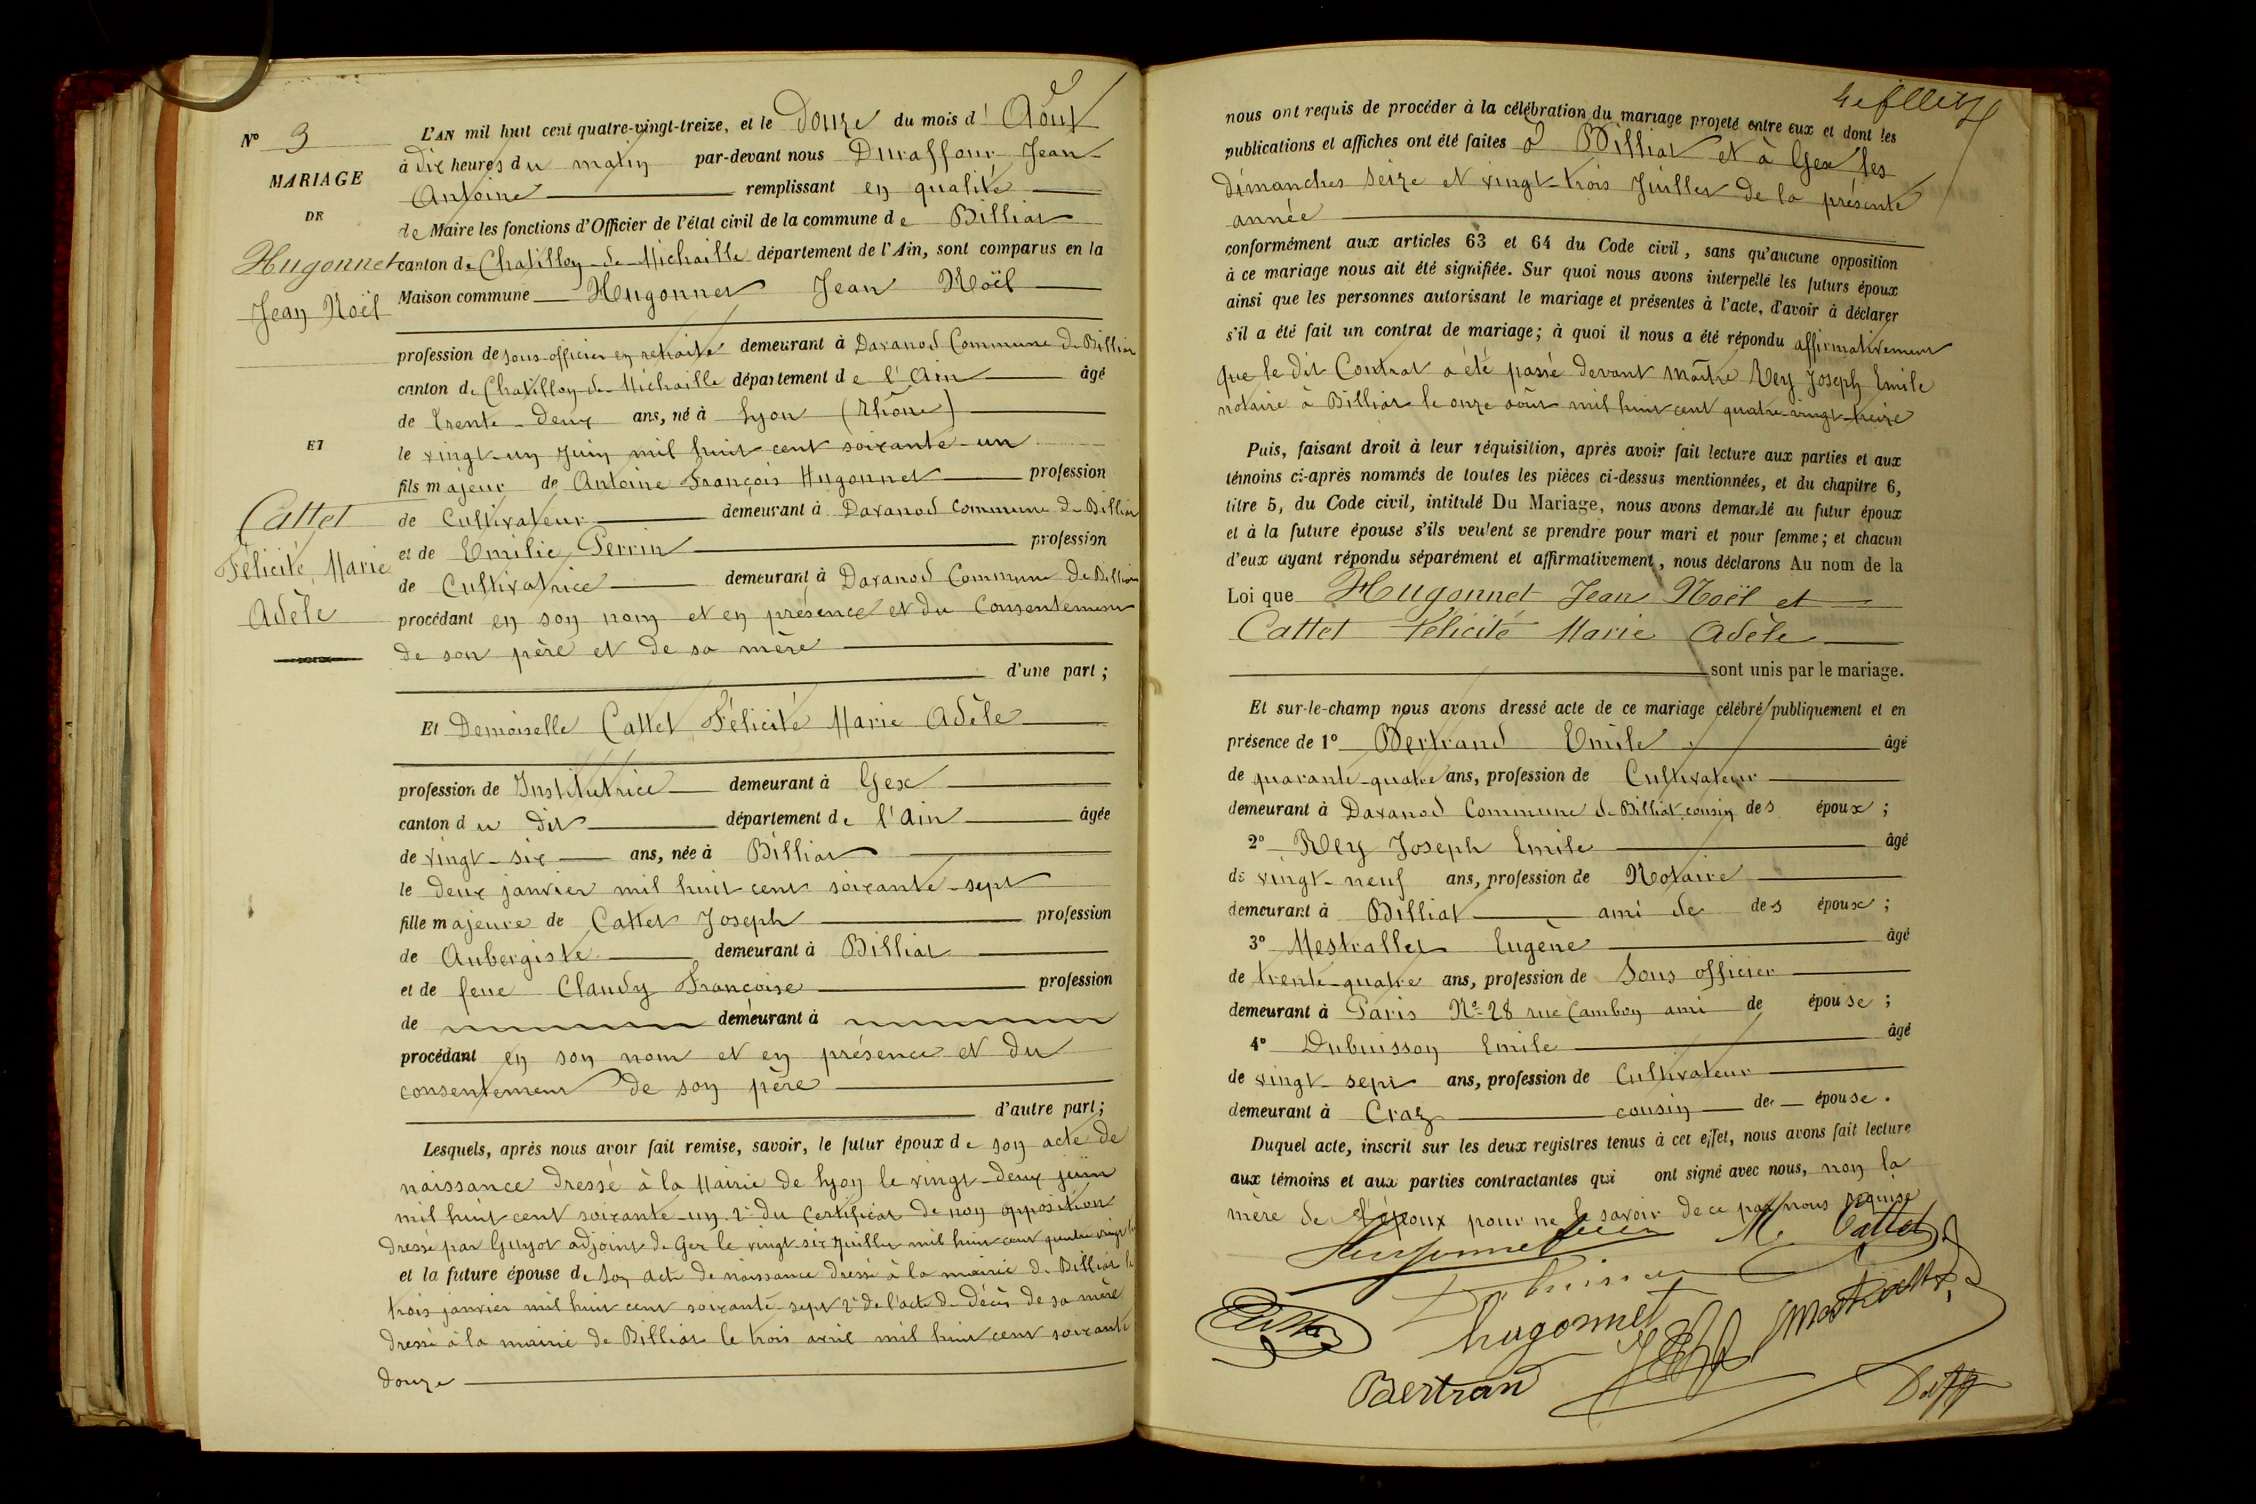 N° 3
MARIAGE
DE
Hugonnet
Jean Noël
ET
Cattet
Félicité Marie
Adèle
L'AN mil huit cent quatre-vingt-treize, et le Douze du mois d' Août
à Dix heures du matin par-devant nous Duraffour Jean-
Antoine remplissant en qualité
de Maire les fonctions d'Officier de l'état civil de la commune de Billiat
canton de Chatillon-de-Michaille département de l'Ain, sont comparus en la
Maison commune Hugonnet Jean Noël
profession de sous-officier en retraite demeurant à Davanod Commune de Billiat
canton de Chatillon-de-Michaille département de l'Ain âgé
de trente-deux ans, né à Lyon (Rhône)
le vingt-un Juin mil huit cent soixante-un
fils majeur de Antoine François Hugonnet profession
de Cultivateur demeurant à Davanod Commune de Billiat
et de Emilie Perrin profession
de Cultivatrice demeurant à Davanod Commune de Billiat
procédant en son nom et en présence et du Consentement
de son père et de sa mère
d'une part ;
Et Demoiselle Cattet Félicité Marie Adèle
profession de Institutrice demeurant à Gex
canton du dit département de l'Ain âgée
de vingt-six ans, née à Billiat
le deux janvier mil huit cent soixante-sept
fille majeure de Cattet Joseph profession
de Aubergiste demeurant à Billiat
et de feue Claudy Françoise profession
de demeurant à
procédant en son nom et en présence et du
consentement de son père
d'autre part ;
Lesquels, après nous avoir fait remise, savoir, le futur époux de son acte de
naissance dressé à la Mairie de Lyon le vingt-deux juin
mil huit cent soixante-un 2° du Certificat de non opposition
dressé par Guyot adjoint de Gex le vingt-six Juillet mil huit cent quatre vingt
et la future épouse de son acte de naissance dressé à la mairie de Billiat le
trois janvier mil huit cent soixante-sept 2° de l'acte de décès de sa mère
dressé à la mairie de Billiat le trois avril mil huit cent soixante
douze
nous ont requis de procéder à la célébration du mariage projeté entre eux et dont les
publications et affiches ont été faites à Billiat et à Gex les
dimanches seize et vingt-trois Juillet de la présente
année
conformément aux articles 63 et 64 du Code civil, sans qu'aucune opposition
à ce mariage nous ait été signifiée. Sur quoi nous avons interpellé les futurs époux
ainsi que les personnes autorisant le mariage et présentes à l'acte, d'avoir à déclarer
s'il a été fait un contrat de mariage ; à quoi il nous a été répondu affirmativement
que le dit Contrat a été passé devant Maître Rey Joseph Emile
notaire à Billiat le onze août mil huit cent quatre-vingt-treize
Puis, faisant droit à leur réquisition, après avoir fait lecture aux parties et aux
témoins ci-après nommés de toutes les pièces ci-dessus mentionnées, et du chapitre 6,
titre 5, du Code civil, intitulé Du Mariage, nous avons demandé au futur époux
et à la future épouse s'ils veulent se prendre pour mari et pour femme ; et chacun
d'eux ayant répondu séparément et affirmativement, nous déclarons Au nom de la
Loi que Hugonnet Jean Noël et
Cattet Félicité Marie Adèle
sont unis par le mariage.
Et sur-le-champ nous avons dressé acte de ce mariage célébré publiquement et en
présence de 1° Bertrand Emile âgé
de quarante-quatre ans, profession de Cultivateur
demeurant à Davanod Commune de Billiat cousin des époux ;
2° Rey Joseph Emile âgé
de vingt-neuf ans, profession de Notaire
demeurant à Billiat ami de des époux ;
3° Mestrallet Eugène âgé
de trente-quatre ans, profession de Sous officier
demeurant à Paris N° 28 rue Cambon ami de épouse ;
4° Dubuisson Emile âgé
de vingt-sept ans, profession de Cultivateur
demeurant à Craz cousin de épouse.
Duquel acte, inscrit sur les deux registres tenus à cet effet, nous avons fait lecture
aux témoins et aux parties contractantes qui ont signé avec nous, non la
mère de l'époux pour ne le savoir de ce par nous requise
Hugonnet M. Cattet
hugonnet
Bertrand